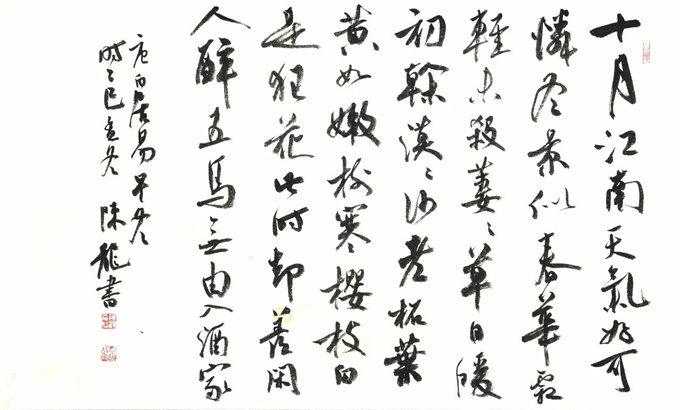 十月江南天氣好可
憐冬景似春華霜
輕未殺萋〻草日暖
初乾漠〻沙老柘葉
黄如嫩樹寒櫻枝白
是狂花此時却羨閑
人醉五馬無由入酒家
唐白居易早冬
時乙巳孟冬 陳龍書